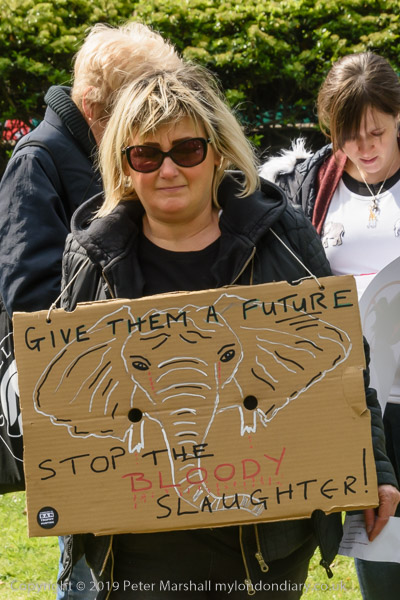 GIVE THEM A FUTURE
STOP THE
BLOODY
SLAUGHTER!
Copyright © 2019 Peter Marshall mylondondiary.co.uk